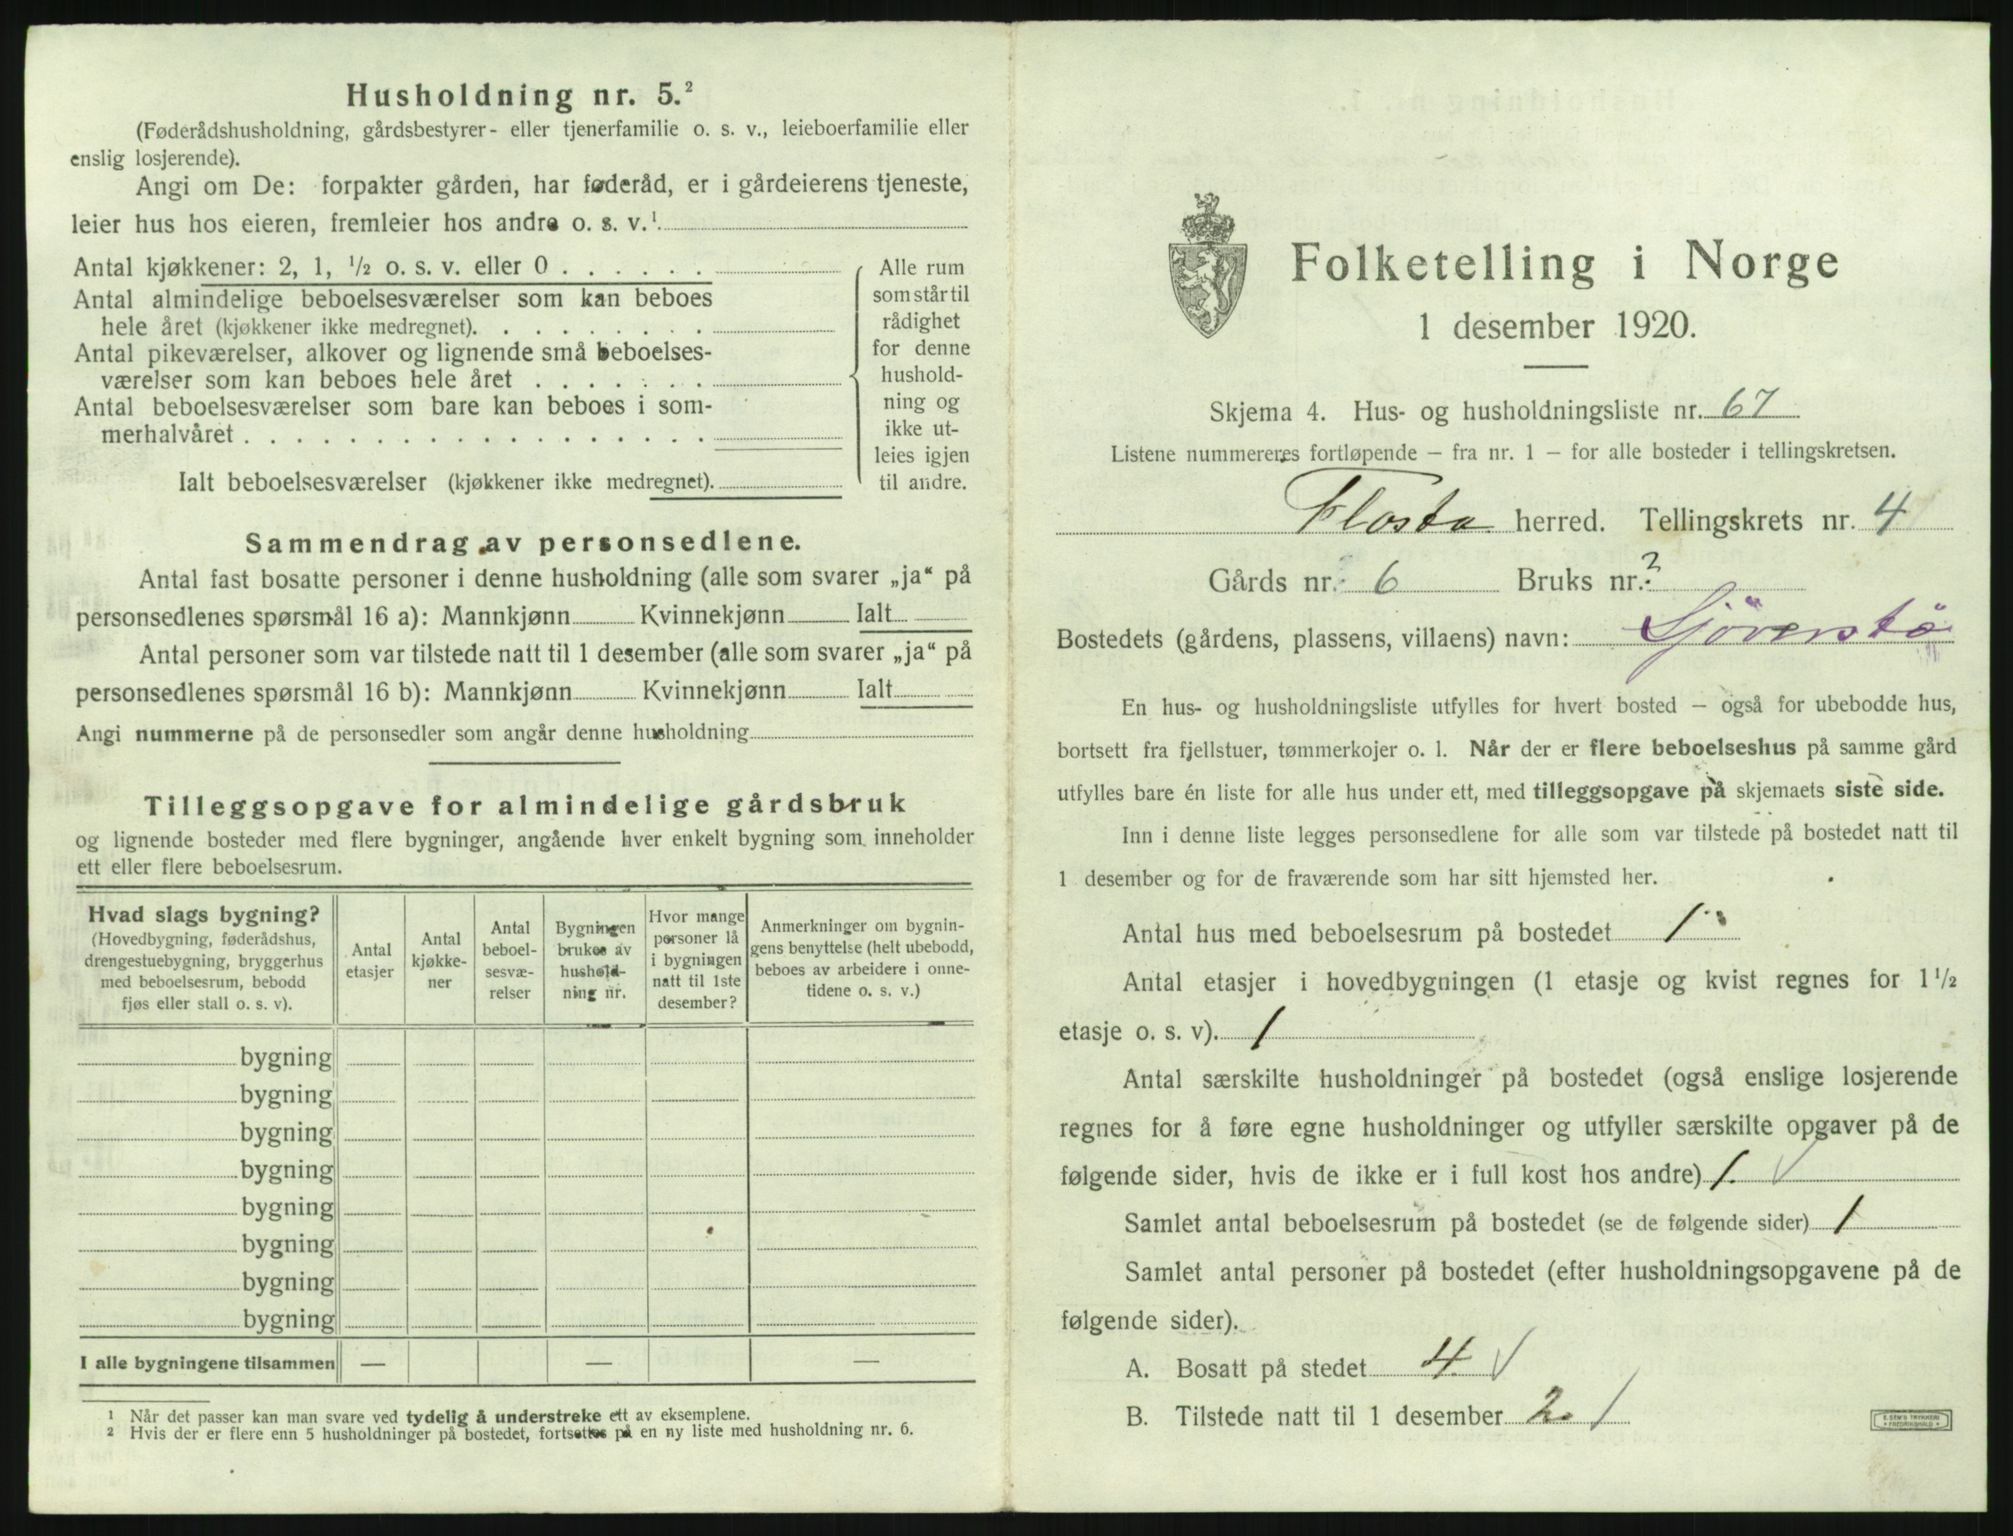 Husholdning nr. 5.²
(Føderådshusholdning, gårdsbestyrer- eller tjenerfamilie o. s. v., leieboerfamilie eller
enslig losjerende).
Angi om De: forpakter gården, har føderåd, er i gårdeierens tjeneste,
leier hus hos eieren, fremleier hos andre o. s. v.¹
Antal kjøkkener: 2, 1, ½ o. s. v. eller 0 . . . . . .
Antal almindelige beboelsesværelser som kan beboes
hele året (kjøkkener ikke medregnet). . . . . . . . .
Antal pikeværelser, alkover og lignende små beboelses-
værelser som kan beboes hele året . . . . . . .
Antal beboelsesværelser som bare kan beboes i som-
merhalvåret . . . . . . . . . . . . . . . . . .
Alle rum
som står til
rådighet
for denne
hushold-
ning og
ikke ut-
leies igjen
til andre.
Ialt beboelsesværelser (kjøkkener ikke medregnet).
Sammendrag av personsedlene.
Antal fast bosatte personer i denne husholdning (alle som svarer „ja“ på
personsedlenes spørsmål 16 a): Mannkjønn Kvinnekjønn Ialt
Antal personer som var tilstede natt til 1 desember (alle som svarer „ja“ på
personsedlenes spørsmål 16 b): Mannkjønn Kvinnekjønn Ialt
Angi nummerne på de personsedler som angår denne husholdning
Tilleggsopgave for almindelige gårdsbruk
og lignende bosteder med flere bygninger, angående hver enkelt bygning som inneholder
ett eller flere beboelsesrum.
Hvad slags bygning?
(Hovedbygning, føderådshus,
drengestuebygning, bryggerhus
med beboelsesrum, bebodd
fjøs eller stall o. s. v).
Antal
etasjer
Antal
kjøkke-
ner
Antal
beboel-
sesvæ-
relser
Bygningen
brukes av
hushold-
ning nr.
Hvor mange
personer lå
i bygningen
natt til 1ste
desember?
Anmerkninger om bygnin-
gens benyttelse (helt ubebodd,
beboes av arbeidere i onne-
tidene o. s. v.)
bygning
bygning
bygning
bygning
bygning
bygning
bygning
bygning
I alle bygningene tilsammen — — —
¹ Når det passer kan man svare ved tydelig å understreke ett av eksemplene.
² Hvis der er flere enn 5 husholdninger på bostedet, fortsettes på en ny liste med husholdning nr. 6.
Folketelling i Norge
1 desember 1920.
Skjema 4. Hus- og husholdningsliste nr. 67
Listene nummereres fortløpende – fra nr. 1 – for alle bosteder i tellingskretsen.
Flosta herred. Tellingskrets nr. 4
Gårds nr. 6 Bruks nr. 2
Bostedets (gårdens, plassens, villaens) navn: Sjöverstö
En hus- og husholdningsliste utfylles for hvert bosted – også for ubebodde hus,
bortsett fra fjellstuer, tømmerkojer o. l. Når der er flere beboelseshus på samme gård
utfylles bare én liste for alle hus under ett, med tilleggsopgave på skjemaets siste side.
Inn i denne liste legges personsedlene for alle som var tilstede på bostedet natt til
1 desember og for de fraværende som har sitt hjemsted her.
Antal hus med beboelsesrum på bostedet 1
Antal etasjer i hovedbygningen (1 etasje og kvist regnes for 1½
etasje o. s. v). 1
Antal særskilte husholdninger på bostedet (også enslige losjerende
regnes for å føre egne husholdninger og utfyller særskilte opgaver på de
følgende sider, hvis de ikke er i full kost hos andre) 1.
Samlet antal beboelsesrum på bostedet (se de følgende sider) 1
Samlet antal personer på bostedet (efter husholdningsopgavene på de
følgende sider).
A. Bosatt på stedet 4.
B. Tilstede natt til 1 desember 2.
E. SEM'S TRYKKERI
FREDRIKSHALD